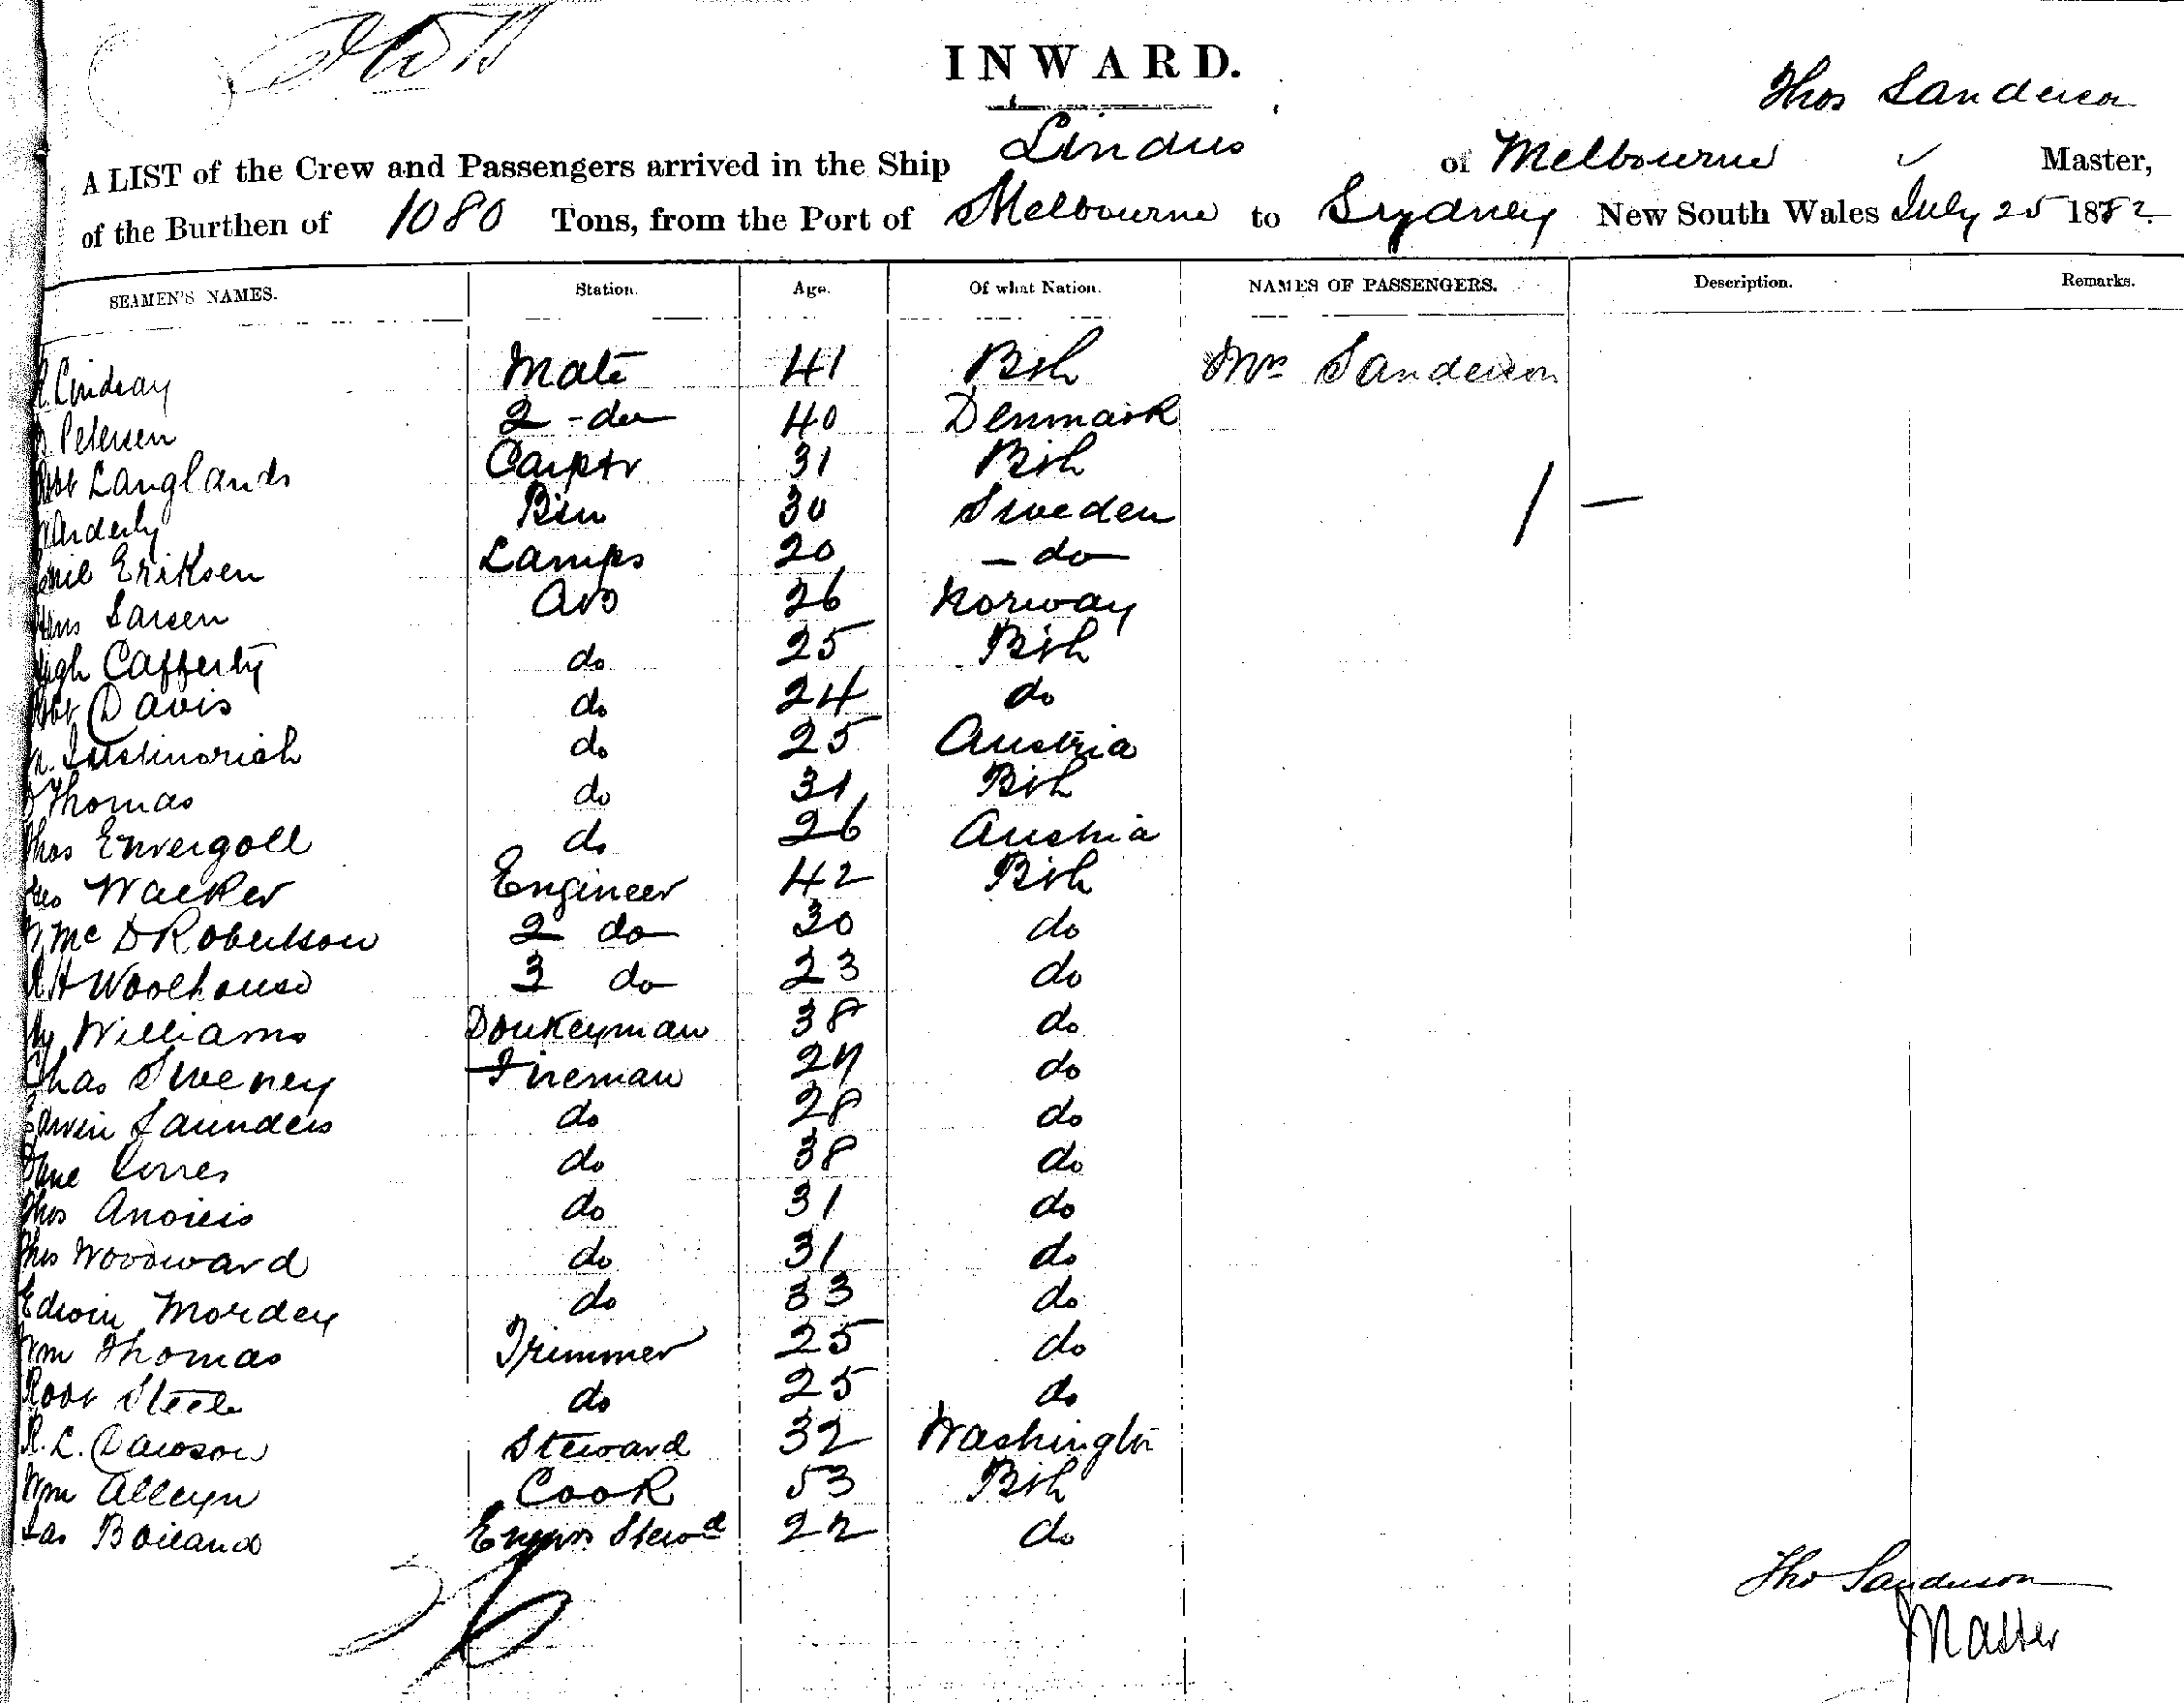 INWARD.
Thos Sanderson
A LIST of the Crew and Passengers arrived in the Ship Lindus of Melbourne Master,
of the Burthen of 1080 Tons, from the Port of Melbourne to Sydney New South Wales July 25 1882
SEAMEN'S NAMES. Station. Age. Of what Nation. NAMES OF PASSENGERS. Description. Remarks.
Lindsay Mate 41 Bsh Mrs Sanderson
Petersen 2 - do 40 Denmark
Robt Langlands Carptr 31 Bsh
30 Sweden
Eriksen Lamps 20 - do
Larsen AB 26 Norway
Hugh Cafferty do 25 Bsh
Robt Davis do 24 do
do 25 Austria
Thomas do 31 Bsh
Thos Envergoll do 26 Austria
Geo Walker Engineer 42 Bsh
Mc D Robertson 2 do 30 do
H Woolhouse 3 do 23 do
Hy Williams Donkeyman 38 do
Chas Sweeney Fireman 27 do
Edwin Saunders do 28 do
do 38 do
Thos do 31 do
Thos Woodward do 31 do
Edwin Mordey do 33 do
Wm Thomas Trimmer 25 do
Robt Steele do 25 do
R. L. Dawson Steward 32 Washington
Wm Alleyn Cook 53 Bsh
Jas Boiland Engrs Stewd 22 do
26
Tho Sanderson
Master